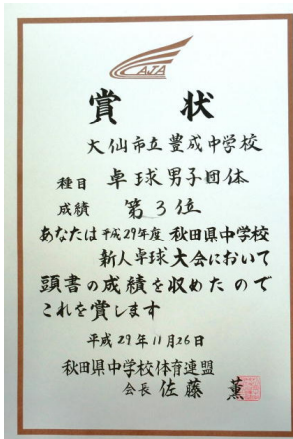 AJA
賞状
大仙市立豊成中学校
種目 卓球男子団体
成績 第3位
あなたは平成29年度 秋田県中学校
新人卓球大会において
頭書の成績を収めたので
これを賞します
平成29年11月26日
秋田県中学校体育連盟
会長 佐藤 薫